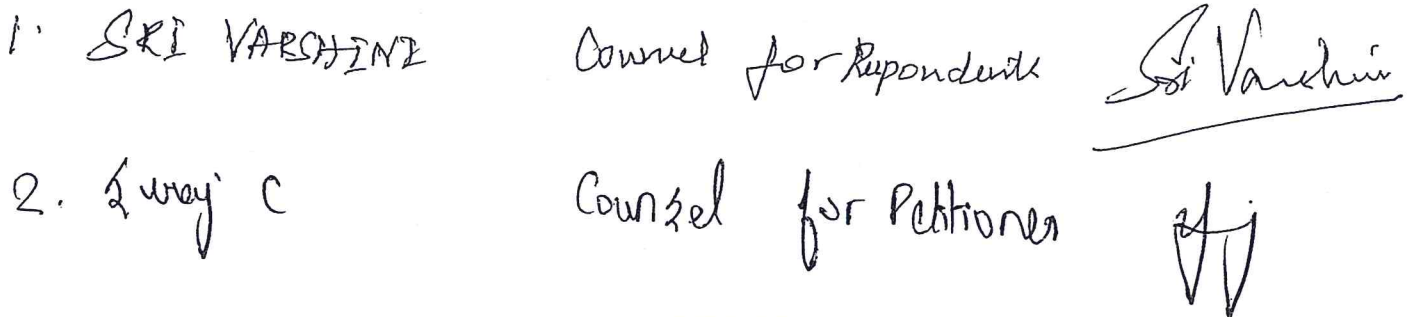 1. SRI VARSHINI Counsel for Respondents Sri Varshini
2. Suraj C Counsel for Petitioner